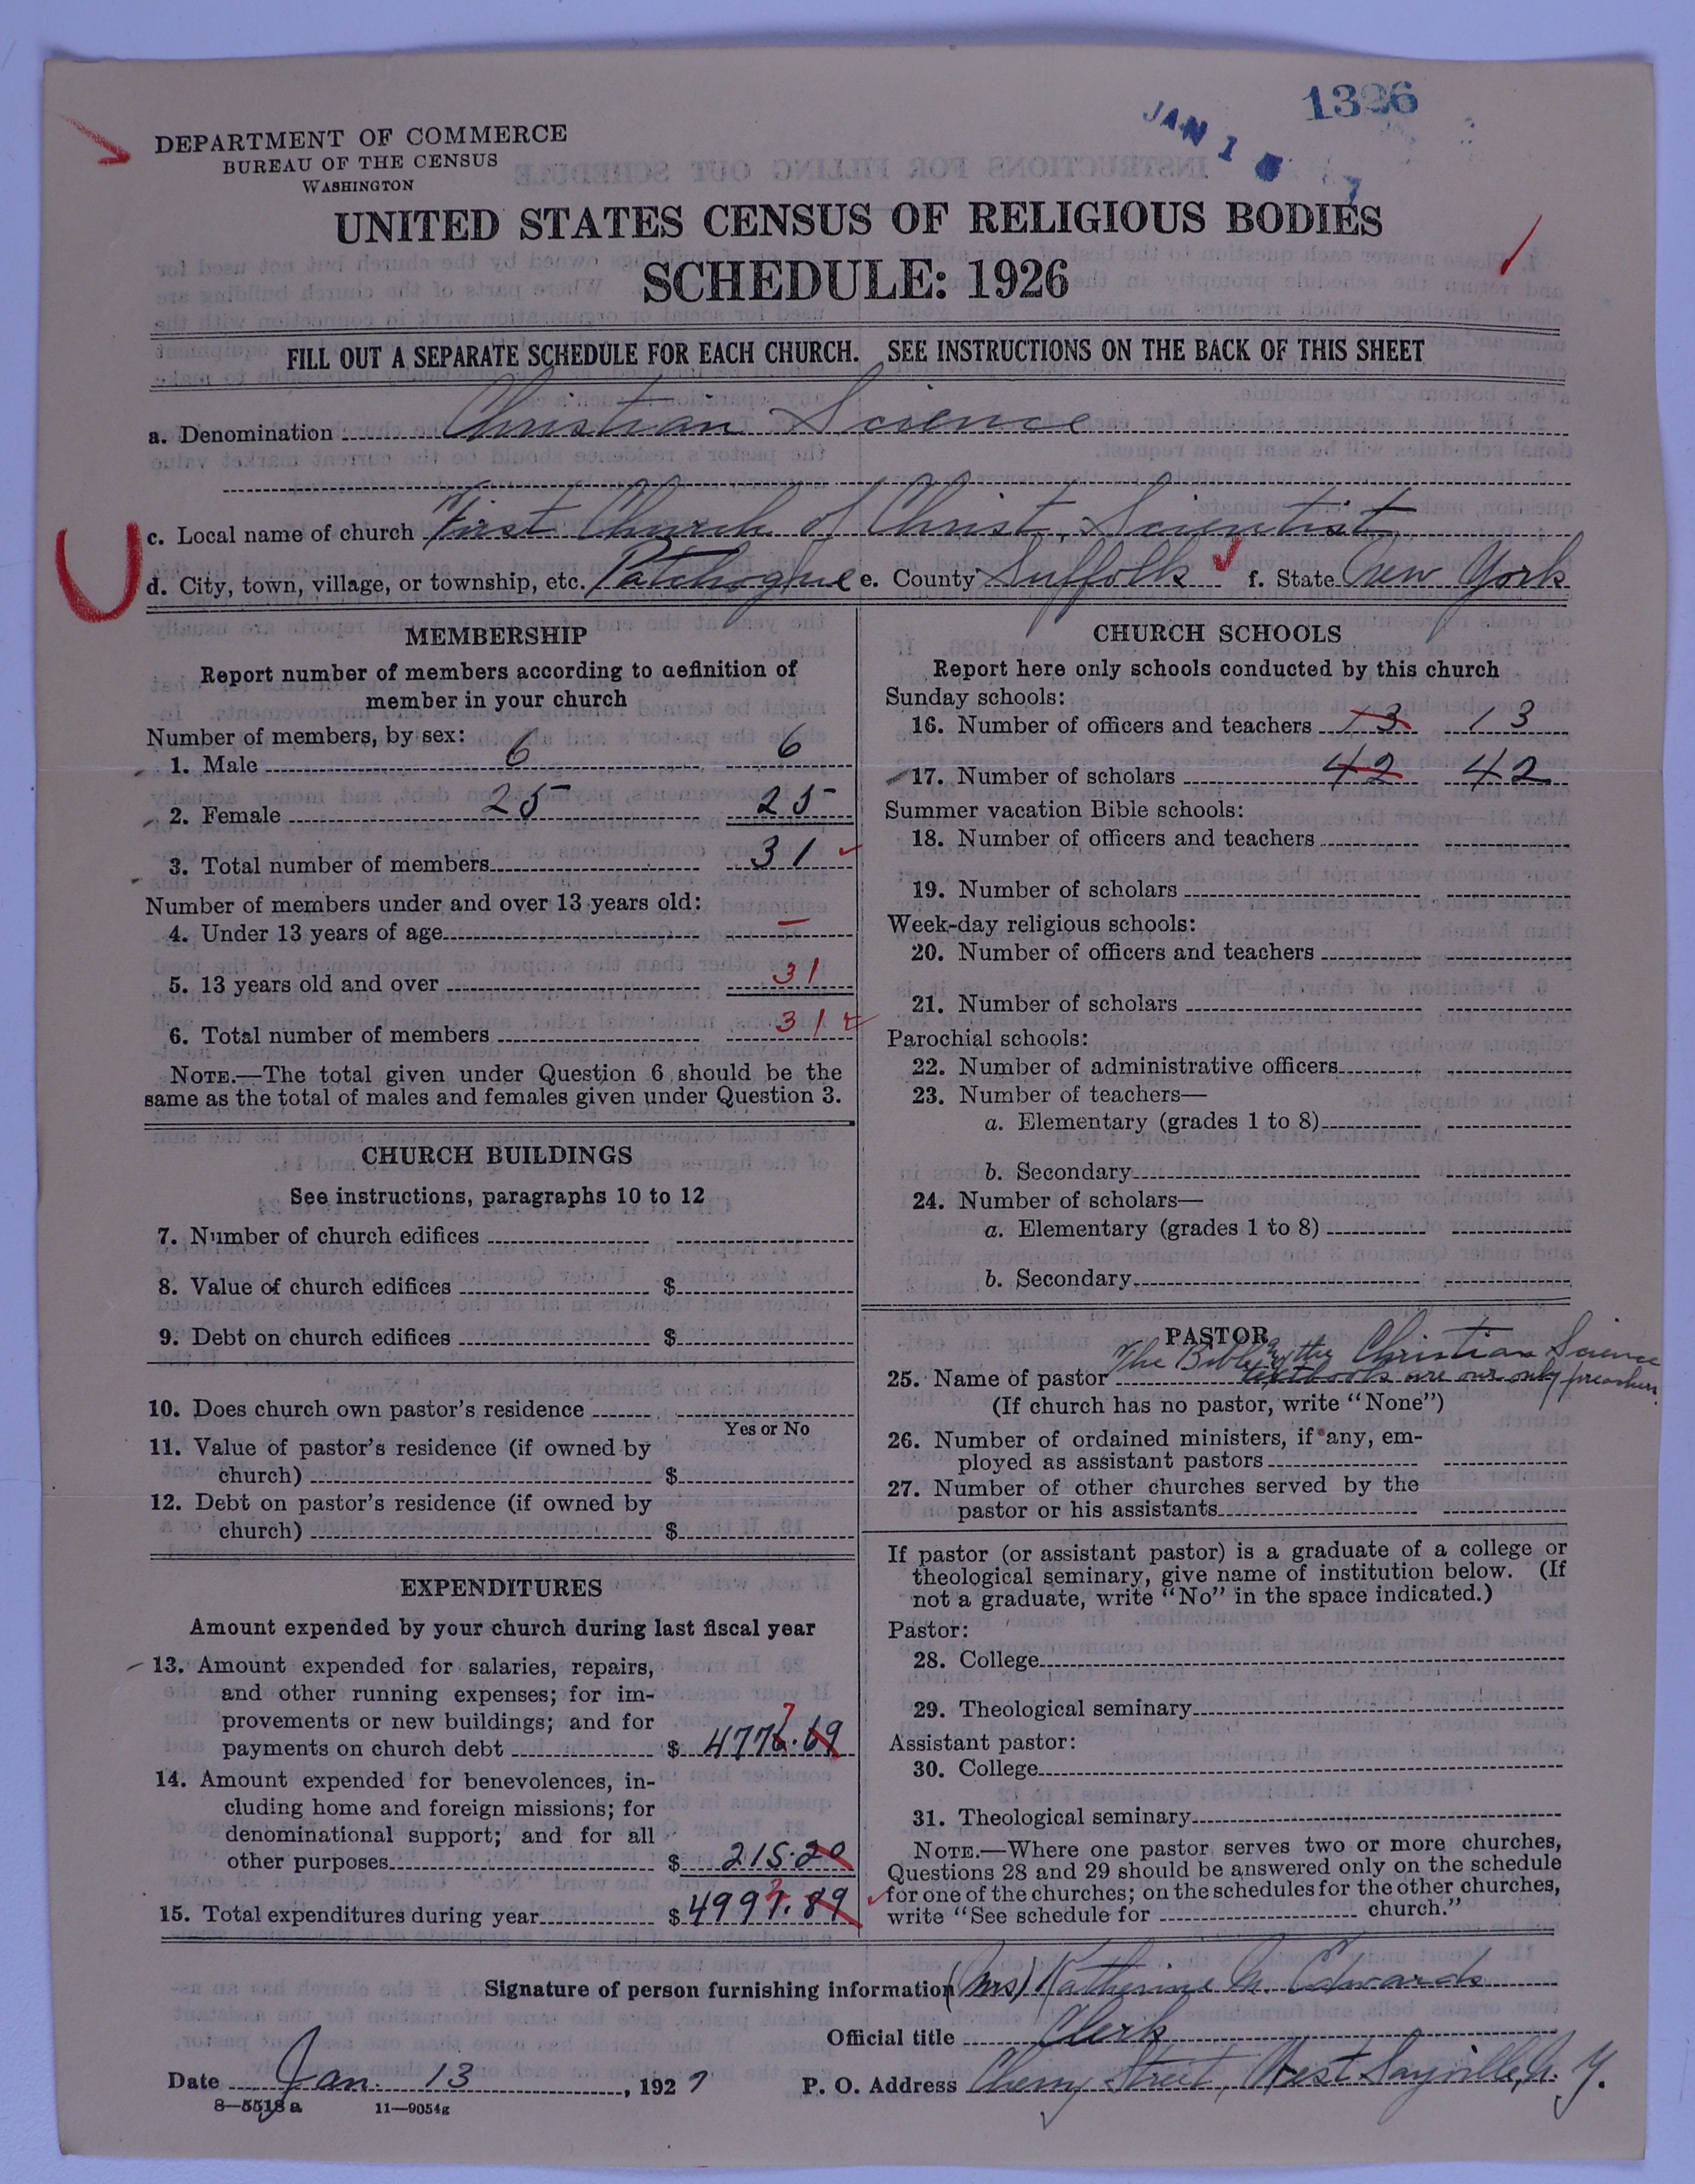 1326
JAN 1
DEPARTMENT OF COMMERCE
BUREAU OF THE CENSUS
WASHINGTON
UNITED STATES CENSUS OF RELIGIOUS BODIES
SCHEDULE: 1926
FILL OUT A SEPARATE SCHEDULE FOR EACH CHURCH. SEE INSTRUCTIONS ON THE BACK OF THIS SHEET
a. Denomination Christian Science
c. Local name of church First Church of Christ, Scientist
d. City, town, village, or township, etc. Patchogue e. County Suffolk f. State New York
MEMBERSHIP
Report number of members according to definition of
member in your church
Number of members, by sex:
1. Male 6 6
2. Female 25 25
3. Total number of members 31
Number of members under and over 13 years old:
4. Under 13 years of age —
5. 13 years old and over 31
6. Total number of members 31
NOTE.—The total given under Question 6 should be the
same as the total of males and females given under Question 3.
CHURCH BUILDINGS
See instructions, paragraphs 10 to 12
7. Number of church edifices
8. Value of church edifices $
9. Debt on church edifices $
10. Does church own pastor's residence
Yes or No
11. Value of pastor's residence (if owned by
church) $
12. Debt on pastor's residence (if owned by
church) $
EXPENDITURES
Amount expended by your church during last fiscal year
13. Amount expended for salaries, repairs,
and other running expenses; for im-
provements or new buildings; and for
7
payments on church debt $ 4776.69
14. Amount expended for benevolences, in-
cluding home and foreign missions; for
denominational support; and for all
other purposes $ 215.20
2
15. Total expenditures during year $ 4991.89
CHURCH SCHOOLS
Report here only schools conducted by this church
Sunday schools:
16. Number of officers and teachers 13 13
17. Number of scholars 42 42
Summer vacation Bible schools:
18. Number of officers and teachers
19. Number of scholars
Week-day religious schools:
20. Number of officers and teachers
21. Number of scholars
Parochial schools:
22. Number of administrative officers
23. Number of teachers—
a. Elementary (grades 1 to 8)
b. Secondary
24. Number of scholars—
a. Elementary (grades 1 to 8)
b. Secondary
PASTOR
The Bible & the Christian Science
25. Name of pastor textbook are our only preachers
(If church has no pastor, write "None")
26. Number of ordained ministers, if any, em-
ployed as assistant pastors
27. Number of other churches served by the
pastor or his assistants
If pastor (or assistant pastor) is a graduate of a college or
theological seminary, give name of institution below. (If
not a graduate, write "No" in the space indicated.)
Pastor:
28. College
29. Theological seminary
Assistant pastor:
30. College
31. Theological seminary
NOTE.—Where one pastor serves two or more churches,
Questions 28 and 29 should be answered only on the schedule
for one of the churches; on the schedules for the other churches,
write "See schedule for church."
Signature of person furnishing information (Mrs) Katherine N. Edwards
Official title Clerk
Date Jan. 13, 1927 P. O. Address Cherry Street, West Sayville, N. Y.
8—5518 a 11—9054g